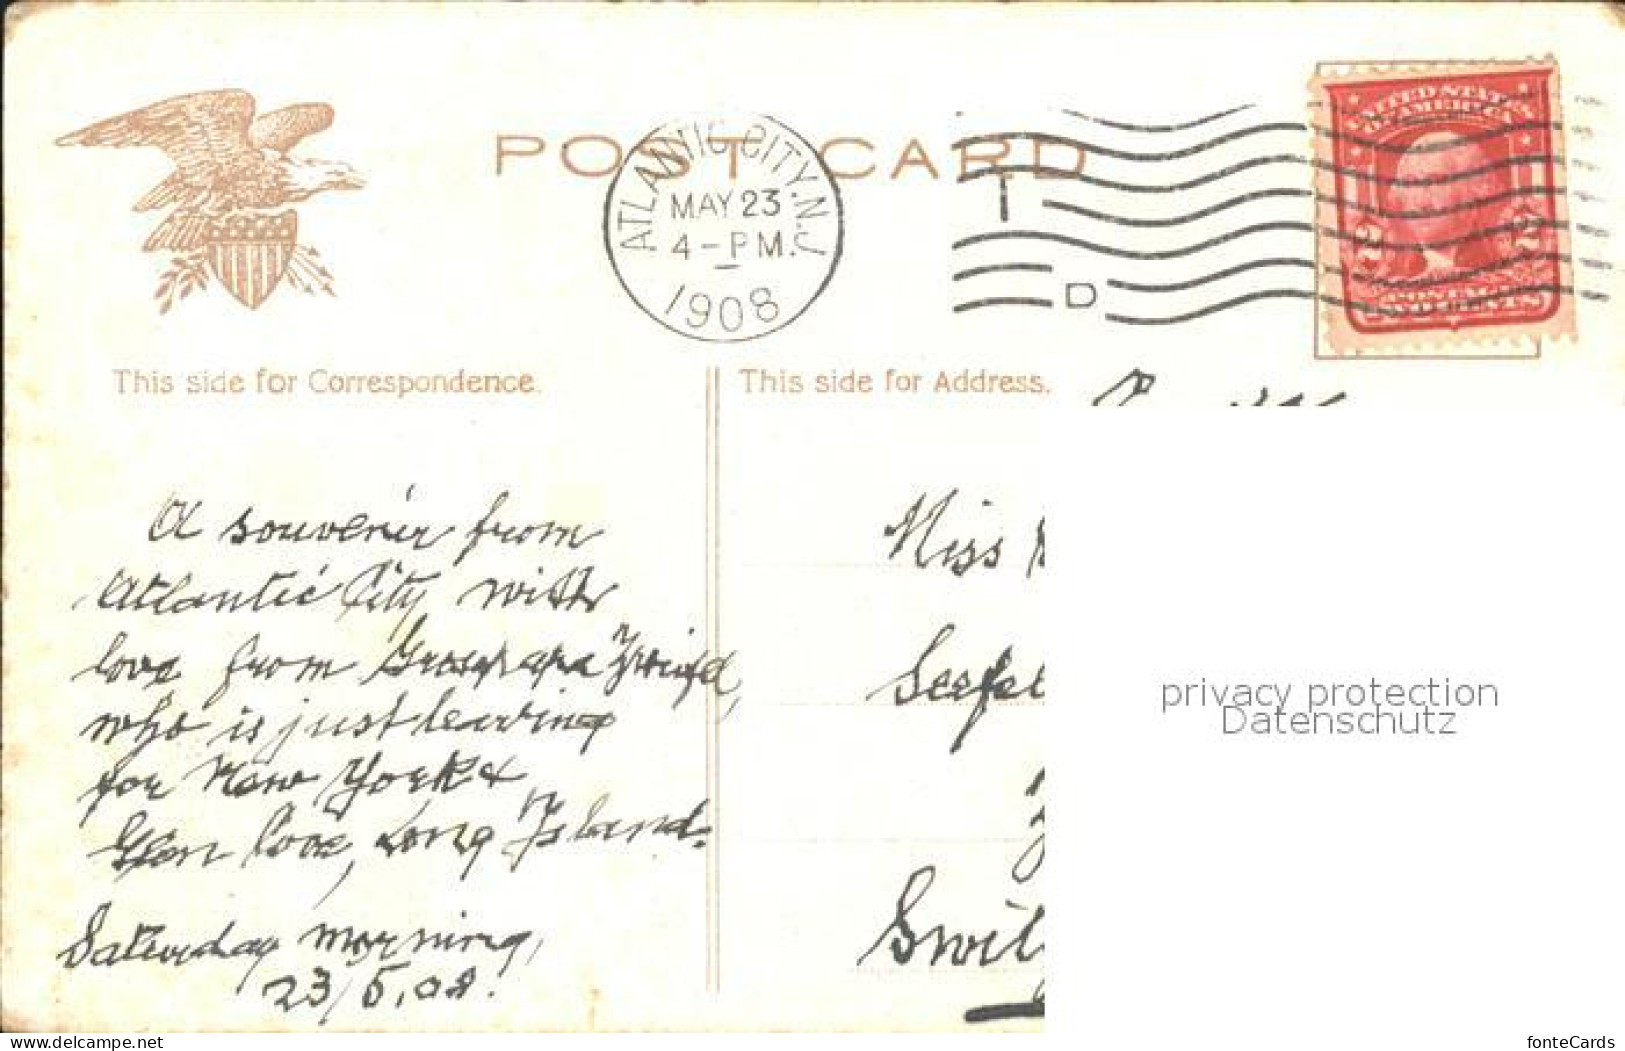 POST CARD
ATLANTIC CITY, N.J.
MAY 23
4 - PM.
1908
T
D
UNITED STATES
OF AMERICA
2 2
POSTAGE
TWO CENTS
This side for Correspondence.
This side for Address.
A souvenir from
Atlantic City with
love from Grosspapa
who is just leaving
for New York &
Glen Cove, Long Island.
Saturday morning,
23/5.08.
Miss
Seefel
Swit
privacy protection
Datenschutz
www.delcampe.net
fonteCards